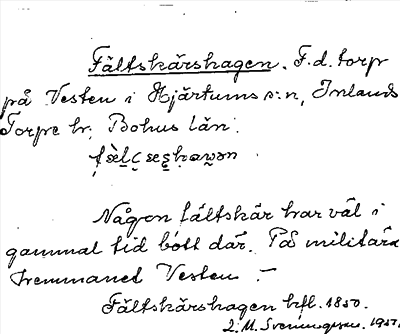 Fältskärshagen. F.d. torp
på Vesten i Hjärtums s:n, Inlands
Torpe hr, Bohus län.
Någon fältskär har väl i
gammal tid bott där. På militära
hemmanet Vesten.
Fältskärshagen bfl. 1850.
1951.